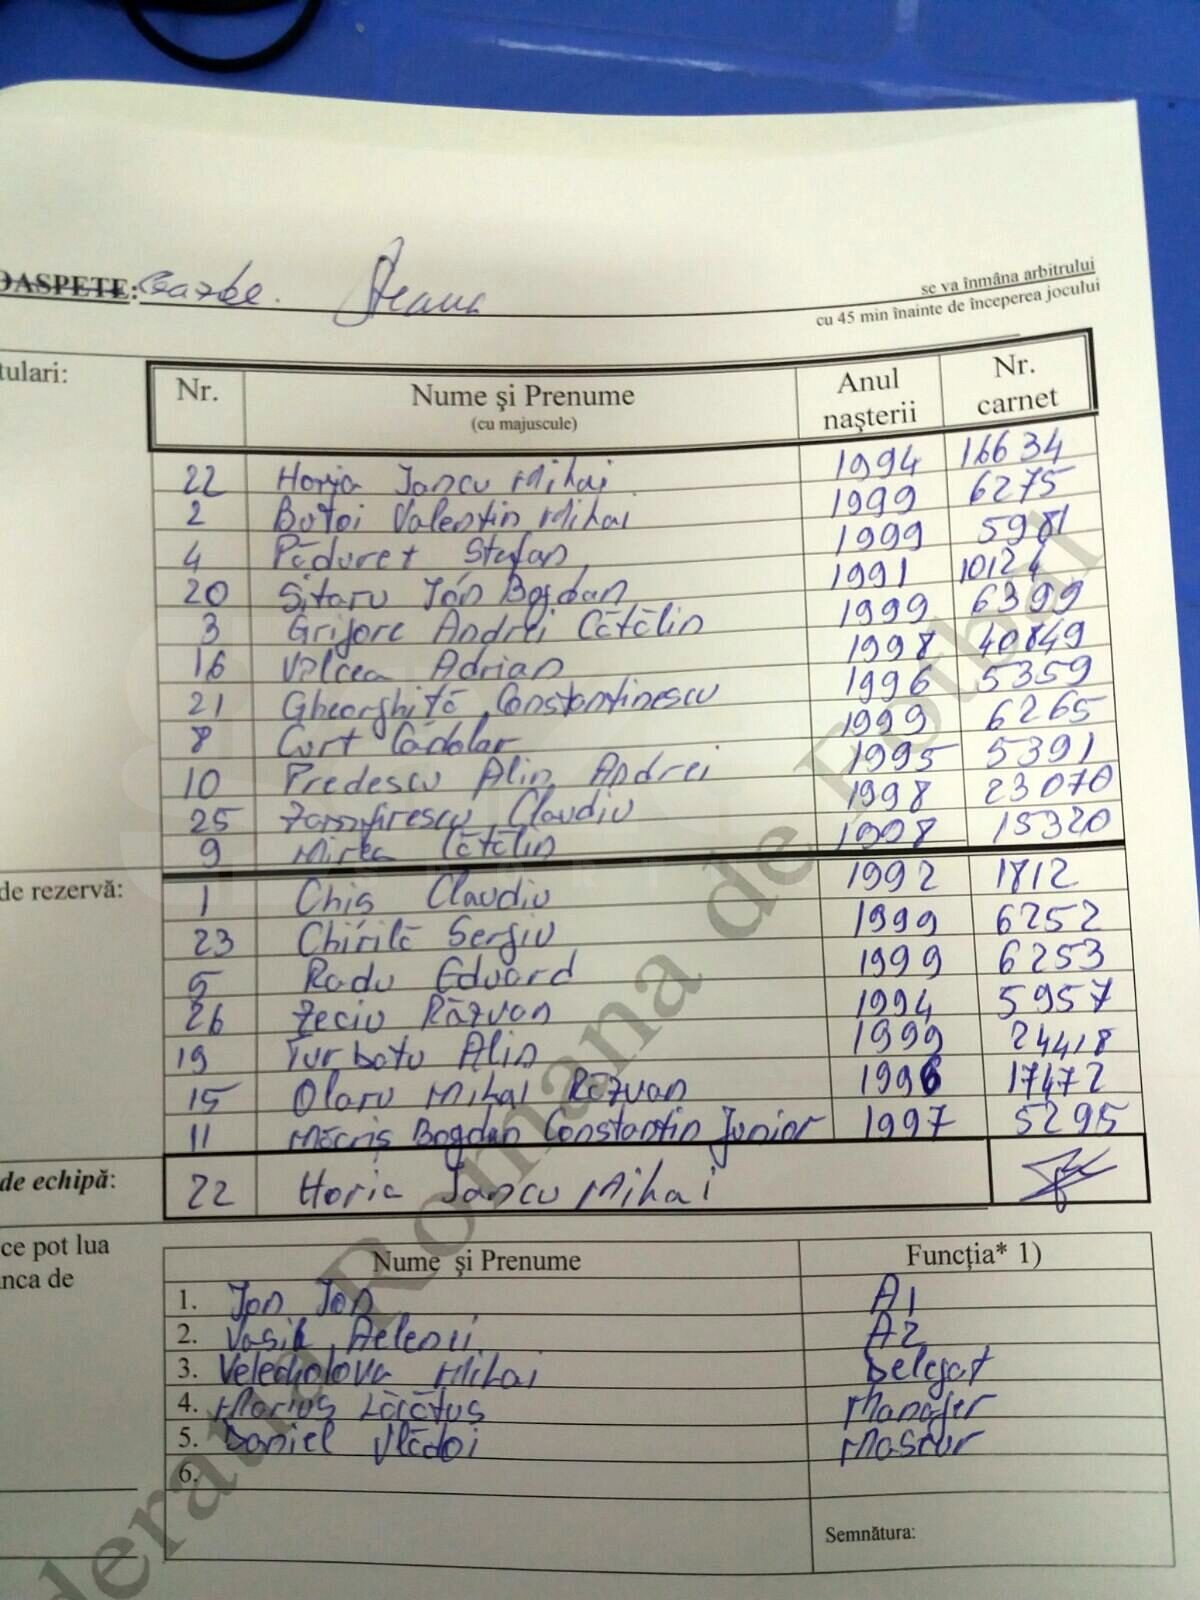 OASPETE: Steaua
se va înmâna arbitrului
cu 45 min înainte de începerea jocului
tulari:
Nr. Nume şi Prenume (cu majuscule) Anul naşterii Nr. carnet
22 Horia Iancu Mihai 1994 16634
2 Botoi Valentin Mihai 1999 6275
4 Păduret Stefan 1999 5981
20 Sitaru Ion Bogdan 1991 10124
3 Grigore Andrei Cătălin 1999 6399
16 Vîlcea Adrian 1998 40849
21 Gheorghiță Constantinescu 1996 5359
8 Curt 1999 6265
10 Predescu Alin Andrei 1995 5391
25 Zamfirescu Claudiu 1998 23070
9 Mirea Cătălin 1998 15320
de rezervă:
1 Chiș Claudiu 1992 1812
23 Chirilă Sergiu 1999 6252
5 Radu Eduard 1999 6253
26 Zeciu Răzvan 1994 5957
19 Turbatu Alin 1999 24418
15 Olaru Mihai Răzvan 1996 17472
11 Măcriș Bogdan Constantin Junior 1997 5295
de echipă: 22 Horia Iancu Mihai
ce pot lua
nca de
Nume şi Prenume Funcţia* 1)
1. Ion Ion A1
2. Vasile A2
3. Mihai Delegat
4. Marius Lăcătuș Manager
5. Daniel Vlădoi Maseur
6.
Semnătura:
derația Romana de Fotbal